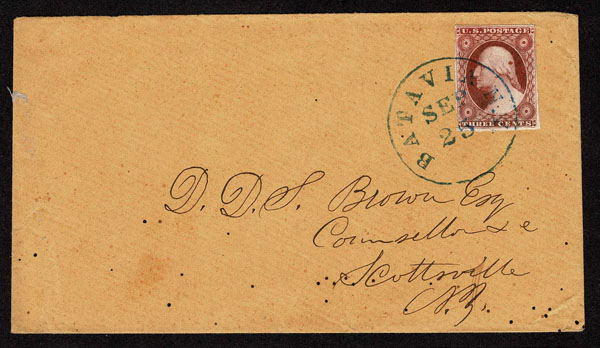 U.S. POSTAGE
THREE CENTS
BATAVIA N.Y.
SEP
25
D. D. S. Brown Esq
Counsellor & c
Scottsville
N.Y.